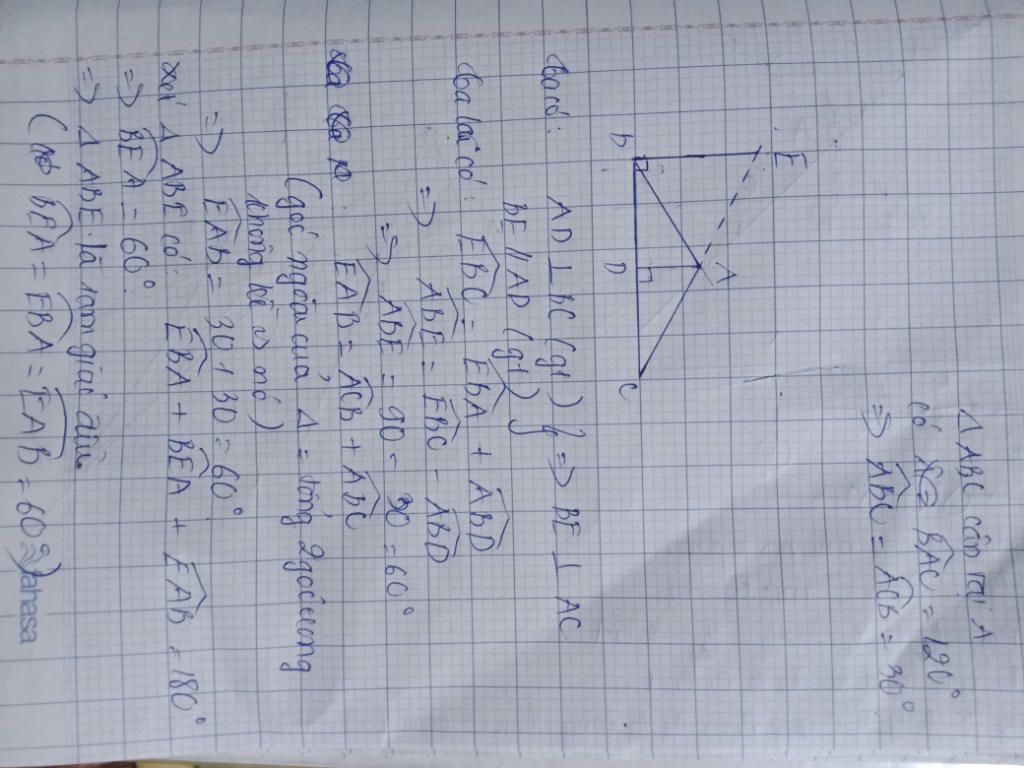 Δ ABC cân tại A
có BAC = 120°
=> ABC = ACB = 30°
E
A
B
D
C
ta có: AD ⊥ BC (gt) } => BE ⊥ AC
BE // AD (gt)
ta lại có: EBC = EBA + ABD
=> ABE = EBC - ABD
=> ABE = 90 - 30 = 60°
EAB = ACB + ABC
(góc ngoài của Δ = tổng 2 góc trong
không kề vs nó)
=> EAB = 30 + 30 = 60°
xét Δ ABE có: EBA + BEA + EAB = 180°
=> BEA = 60°
=> Δ ABE là tam giác đều
( BEA = EBA = EAB = 60°)
ahasa